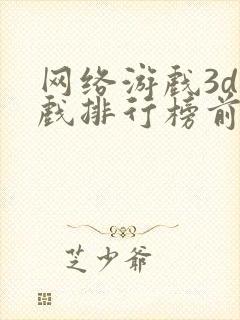 网络游戏3d
戏排行榜前
芝少爷